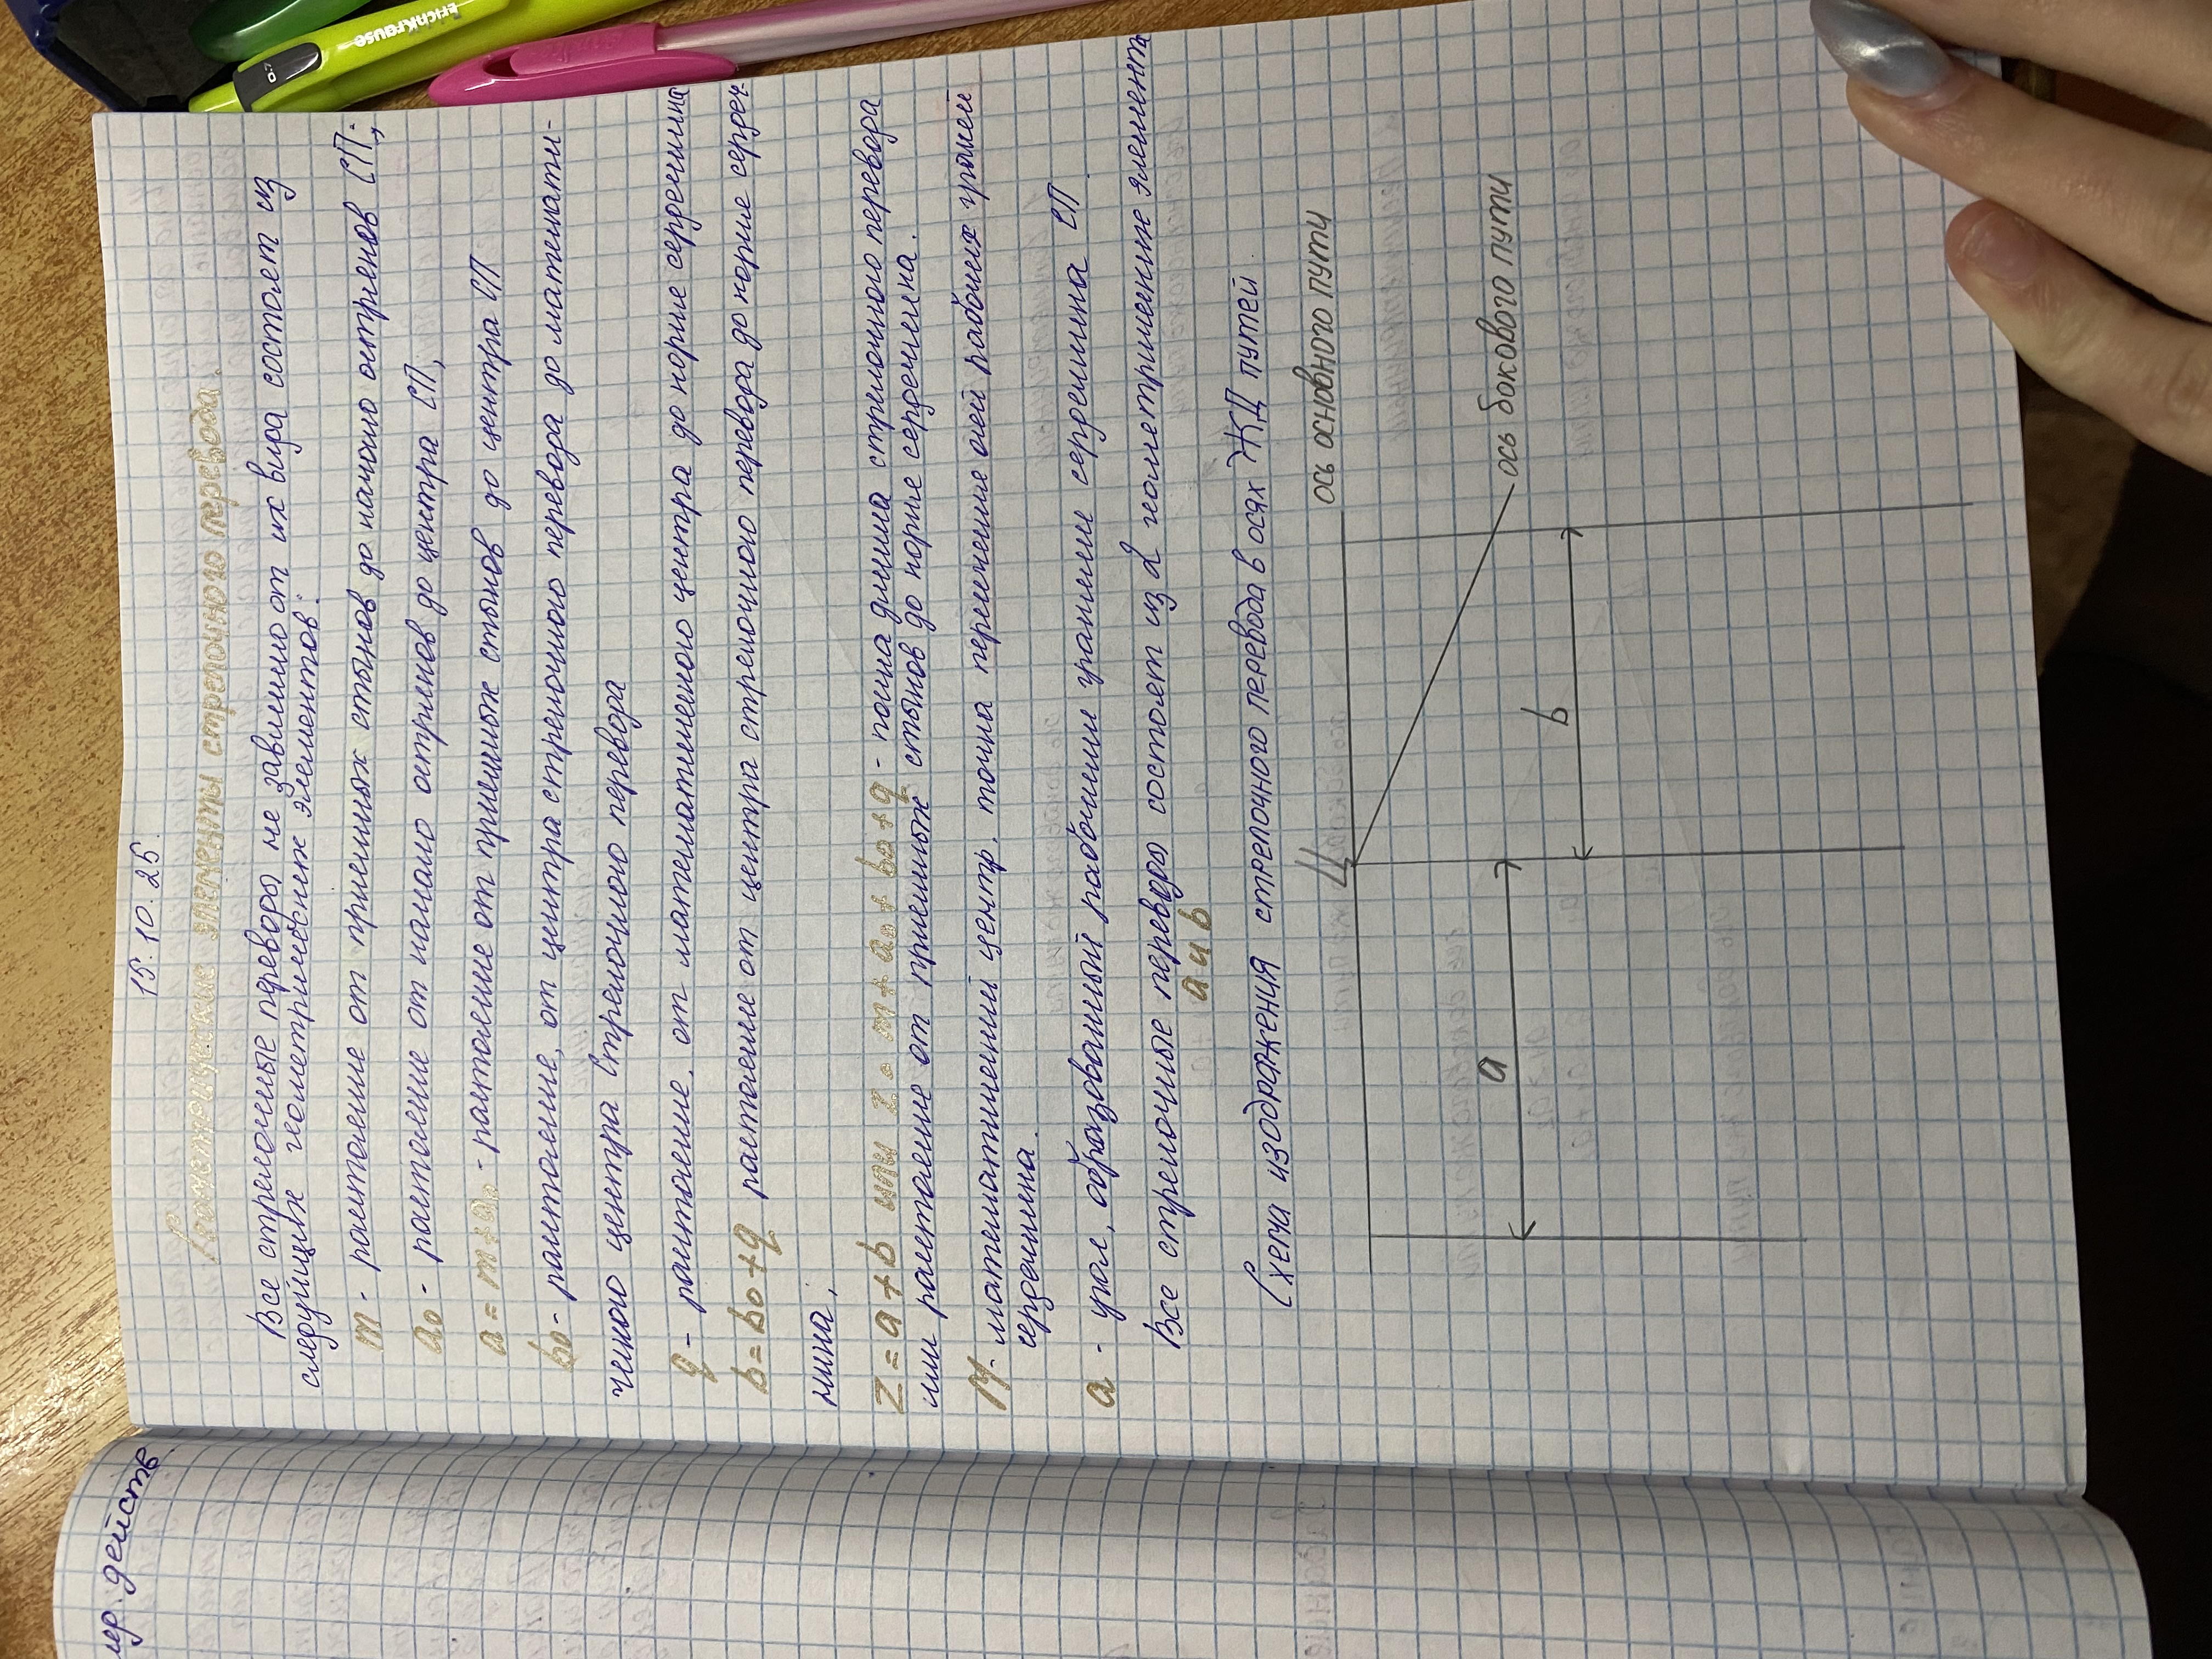 15.10.25.
Геометрические элементы стрелочного перевода.
Все стрелочные переводы не зависимо от их вида состоят из
следующих геометрических элементов:
m - расстояние от приемных стыков до начало остряков СП;
a₀ - расстояние от начало остряков до центра СП,
a = m + a₀ - расстояние от приемных стыков до центра СП
b₀ - расстояние, от центра стрелочного перевода до математи-
ческого центра Стрелочного перевода
q - расстояние, от математического центра до корне сердечника
b = b₀ + q расстояние от центра стрелочного перевода до корне сердеч-
ника;
Z = a + b или Z = m + a₀ + b₀ + q - полна длина стрелочного перевода
или расстояние от приемных стыков до корне сердечника.
M - математический центр. точка пересечение осей рабочих граней
сердечника.
a - угол, образованный рабочими гранями сердечника СП.
Все стрелочные переводы состоят из 2 геометрические элемента
a и b
Схема изображения стрелочного перевода в осях ЖД путей.
ось основного пути
Ц
ось бокового пути
a
b
действ
ErichKrause